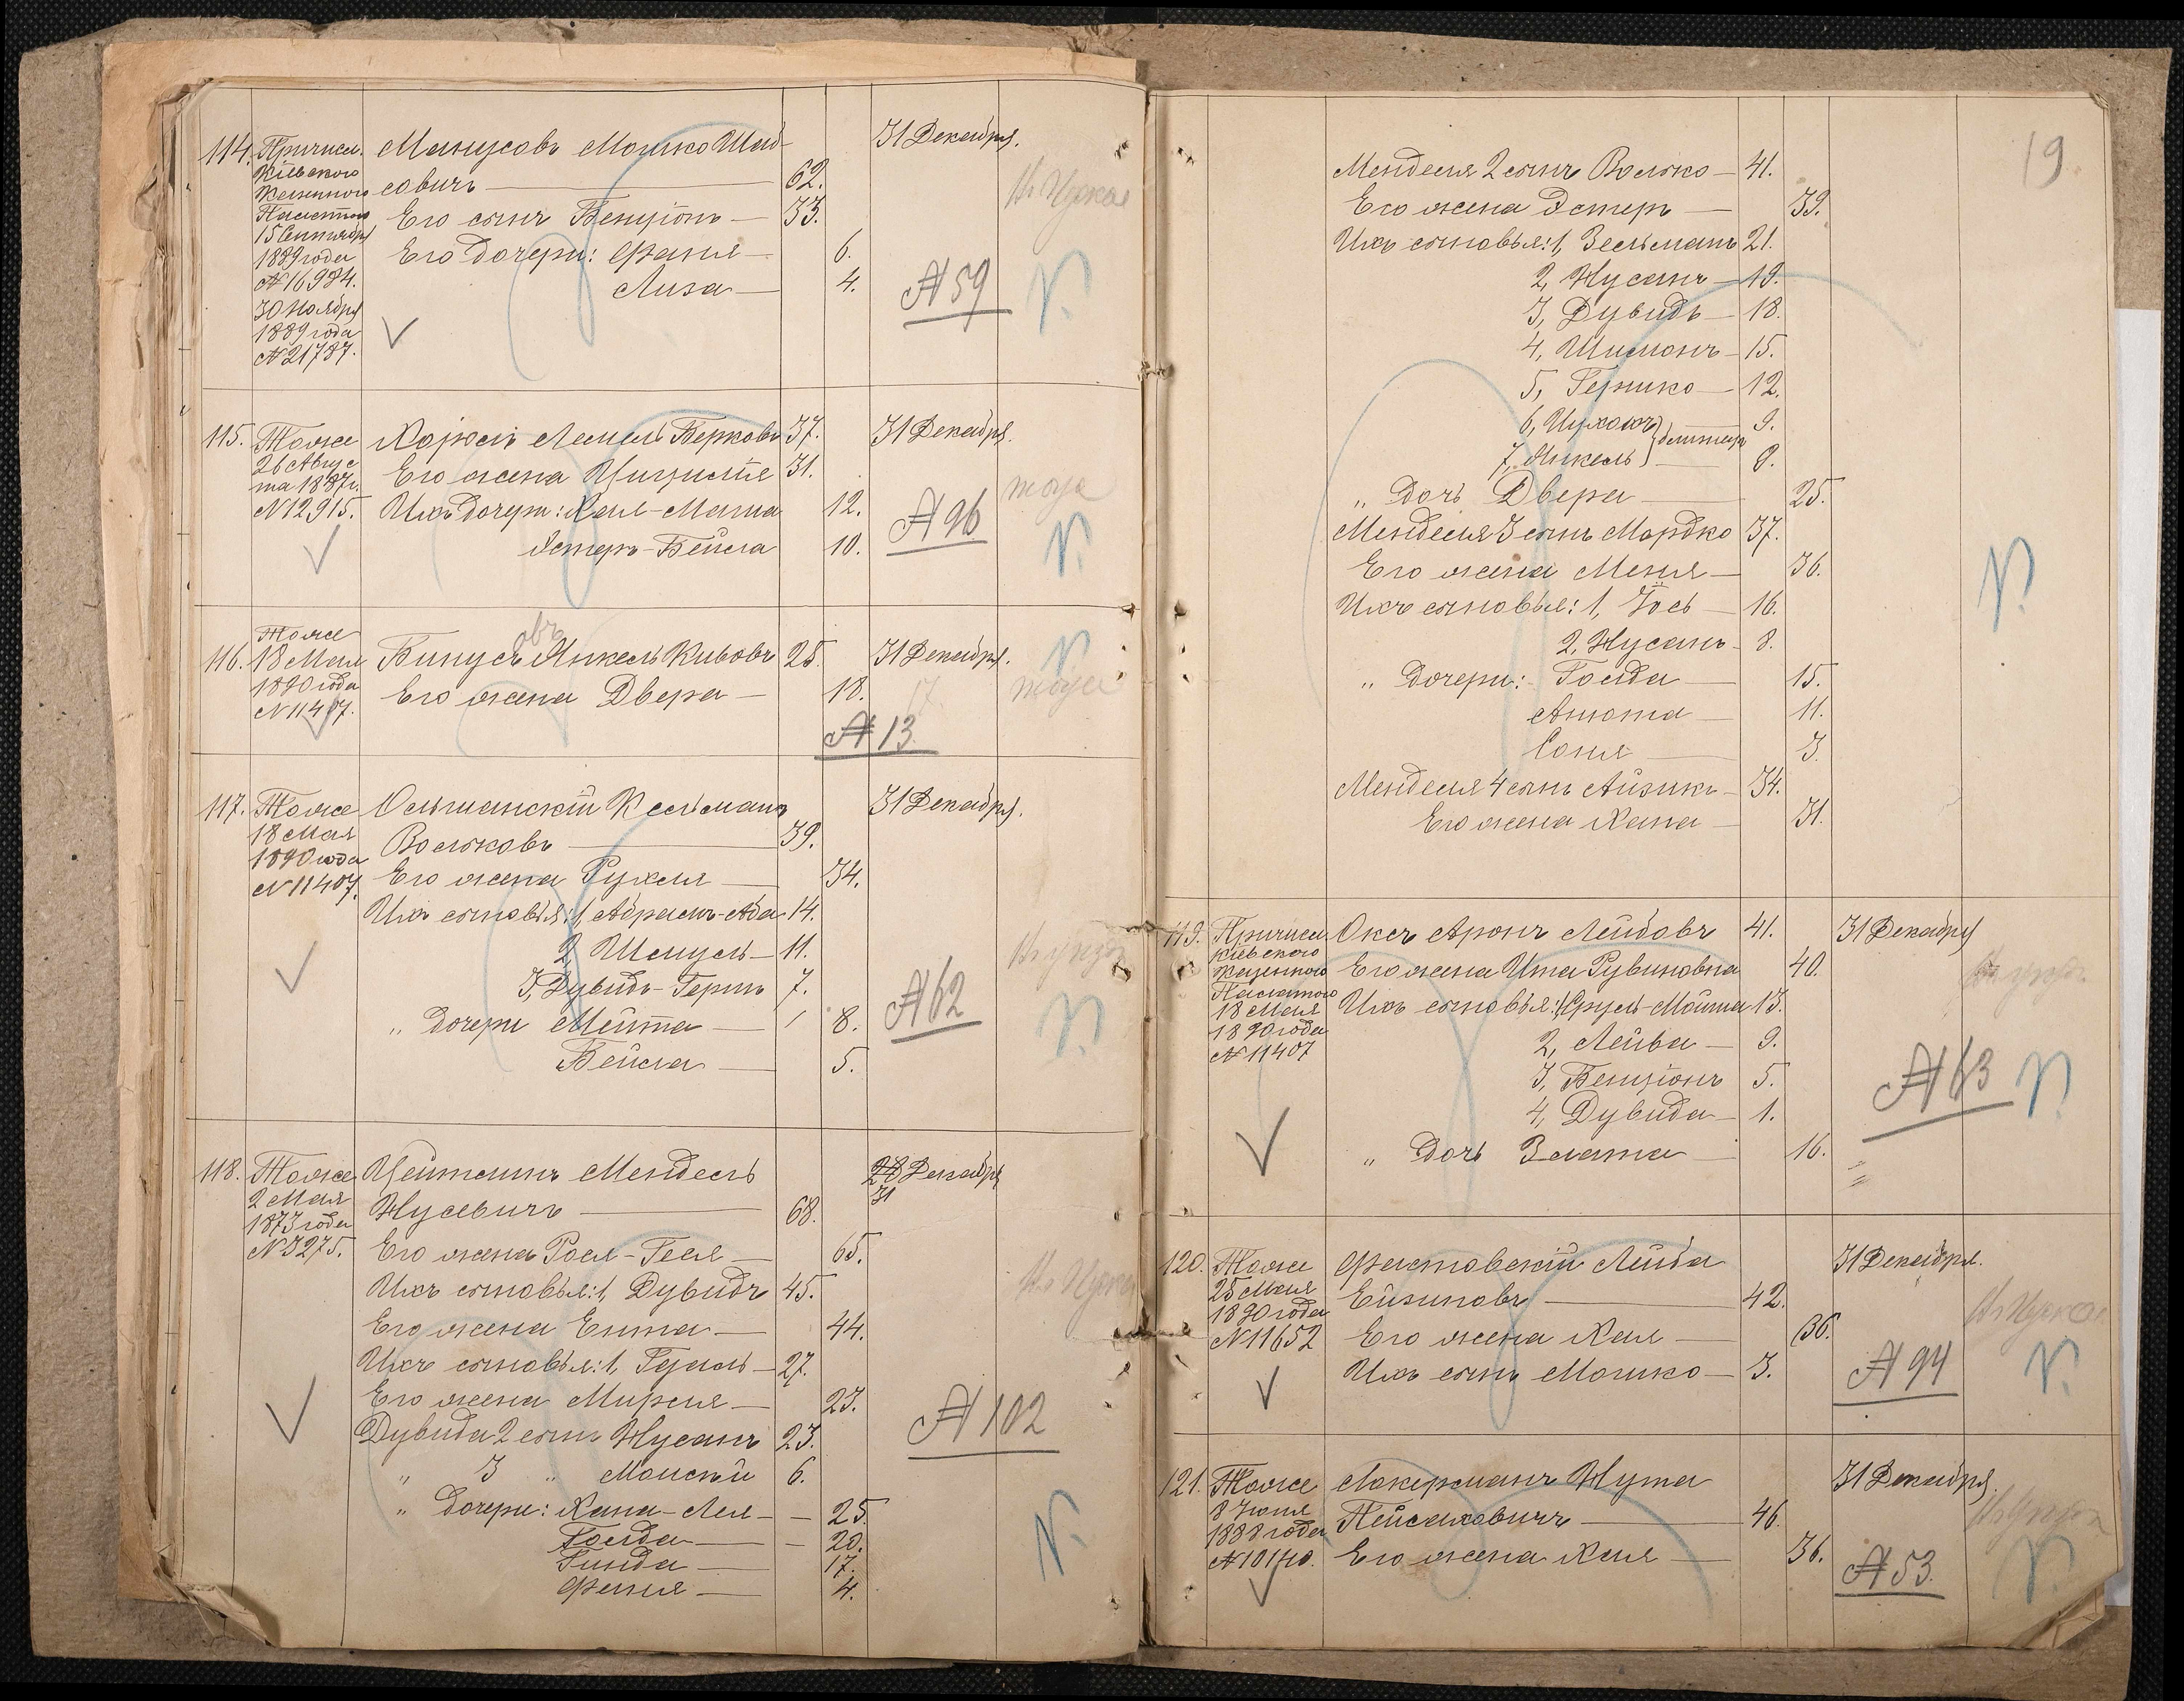 114. Причисл. Манусовъ Мошко Шаб-
Кіевского
Казенного совичъ — 62.
Палатою Его сынъ Бенціонъ — 33.
15 Сентября
1889 года Его дочери: Фаня — 6.
№ 16984. Лиза — 4.
30 Ноября
1889 года
№ 21787.
31 Декабря.
№ 59
115. Тоже Харжель Лемель Берковъ 37. 31 Декабря.
26 Авгус
та 1887 г. Его жена 31.
№ 12915. Ихъ дочери: Хая-Маша 12.
Эстеръ-Бейла 10.
тоже
№ 96
116. Тоже
18 Мая Бинусъ Янкель Кивовъ 25. 31 Декабря.
овъ
1890 года Его жена Двера — 18. 17.
№ 11407.
тоже
№ 13
117. Тоже Ольшанскій Кельманъ 31 Декабря.
18 Мая Вольковъ — 39.
1890 года
№ 11407. Его жена Рухля — 34.
Ихъ сыновья: 1, Абрамъ-Аба 14.
2, Шмуль — 11.
3, Дувидъ-Гершъ 7.
„ дочери Мейта — 8.
Бейла — 5.
№ 62
118. Тоже Цейтлинъ Мендель 28 Декабря
31
2 Мая
1873 года Нусевичъ — 68.
№ 3275. Его жена Рося-Гееля — 65.
Ихъ сыновья: 1, Дувидъ 45.
Его жена Ента — 44.
Ихъ сыновья: 1, Гдаль — 27.
Его жена Мирля — 23.
Дувида 2 сынъ Нусанъ 23.
„ 3 „ Моисей 6.
„ дочери: Хана-Лея — 25.
Голда — 20.
Гинда — 17.
Фаня — 4.
№ 102
19
Менделя 2 сынъ Волько — 41.
Его жена Эстеръ — 39.
Ихъ сыновья: 1, Зельманъ 21.
2, Нусанъ — 19.
3, Дувидъ — 18.
4, Шимонъ — 15.
5, Гершко — 12.
6, Ицхокъ 9.
7, Янкель } близнецы 9.
„ дочь Двера — 25.
Менделя 3 сынъ Мордко 37.
Его жена Меня — 36.
Ихъ сыновья: 1, Іось — 16.
2, Нусанъ — 8.
„ дочери: Голда — 15.
Анюта — 11.
Соня 3.
Менделя 4 сынъ Айзикъ — 34.
Его жена Хана — 31.
119. Причисл. Оксъ Аронъ Лейбовъ 41. 31 Декабря
Кіевского
Казенного Его жена Ита Рувиновна 40.
Палатою
18 Мая Ихъ сыновья: 1, Сруль-Мойша 13.
1890 года
№ 11407 2, Лейба — 9.
3, Бенціонъ 5.
4, Дувида — 1.
„ дочь Злата — 16.
№ 63
120. Тоже Фастовскій Лейба 31 Декабря.
25 Мая
1890 года Ейзиковъ — 42.
№ 11652 Его жена Хая — 36.
Ихъ сынъ Мошко — 3.
№ 94
121. Тоже Локерманъ Нута 31 Декабря.
8 Іюня
1888 года Пейсаховичъ — 46.
№ 10140. Его жена Хая — 36.
№ 53